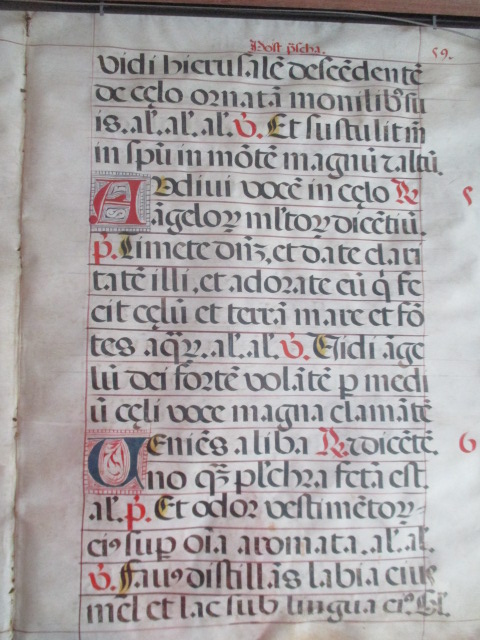 Post pscha. 59.
vidi hierusalē descēdentē
de cęlo ornatā monilibꝰ su
is. al'. al'. al'. V̓. Et sustulit m̄
in spū in mōtē magnū ⁊ altū.
Audiui vocē in cęlo R̓ 5
āgeloꝝ ml'toꝝ dicētiū.
p̓. Timete dn̄ꝫ, et date clari
tatē illi, et adorate eū q̇ fe
cit cęlū et terrā mare et fō
tes aq̄ꝝ. al'. al'. V̓. Vidi āge
lū dei fortē volātē ꝑ medi
ū cęli voce magna clamātē
Veniēs a libā R̓ dicētē. 6
no qꝫ pl'chra fctā est.
al'. p̓. Et odor vestimētoꝝ
eiꝰ suꝑ oīa aromata. al'. al'.
V̓. Fauꝰ distillās labia eius
mel et lac sub lingua eiꝰ. Gl'.